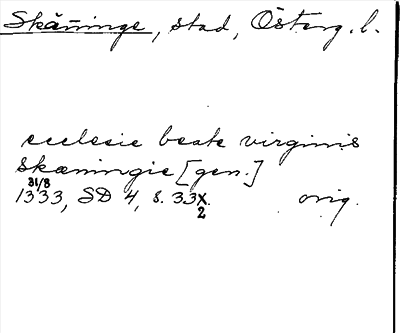 Skänninge, stad, Österg. l.
ecclesie beate virginis
skæningie [gen.]
31/8
1333, SD 4, s. 33X. orig.
2